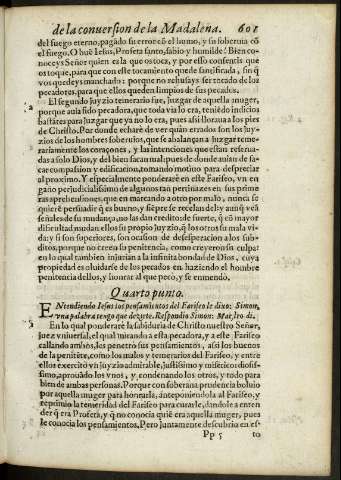 de la conuersion de la Madalena. 601
del fuego eterno, pagado su error cō el humo, y su soberuia cō
el fuego. O buē Iesus, Profeta santo, sabio y humilde! Bien co-
noceys Señor quien es la que os toca, y por esso consentis que
os toque, para que con este tocamiento quede santificada, sin q̄
vos quedeys manchado: porque no rehusays ser tocado de los
pecadores, para que ellos queden limpios de sus pecados.
El segundo juyzio temerario fue, juzgar de aquella muger,
porque auia sido pecadora, que toda via lo era, teniēdo indicios
bastātes para juzgar que ya no lo era, pues assi lloraua a los pies
de Christo. Por donde echaré de ver quán errados son los juy-
zios de los hombres soberuios, que se abalançan a juzgar teme-
rariamente los coraçones, y las intenciones que estan reserua-
das a solo Dios, y del bien sacan mal: pues de donde auian de sa-
car compassion y edificacion, toman motiuo para despreciar
al proximo. Y especialmente ponderaré en este Fariseo, vn en-
gaño perjudicialissimo de algunos tan pertinazes en sus prime
ras aprehensiones, que en marcando a otro por malo, nunca se
quierē persuadir q̄ es bueno, y siēpre se rezelan del: y aunq̄ veā
señales de su mudança, no las dan credito: de suerte, q̄ cō mayor
dificultad mudan ellos su propio juyzio, q̄ los otros su mala vi-
da: y si son superiores, son ocasion de desesperacion a los sub-
ditos, porque no creen su penitencia, como creyeron su culpa:
en lo qual tambien injurian a la infinita bondad de Dios, cuya
propiedad es oluidarse de los pecados en haziendo el hombre
penitencia dellos, y honrar al que pecò, y se enmendò.
Quarto punto.
ENtendiendo Iesus los pensamientos del Fariseo le dixo: Simon,
vna palabra tengo que dezirte. Respondio Simon: Maestro di.
En lo qual ponderaré la sabiduria de Christo nuestro Señor,
Iuez vniuersal, el qual mirando a esta pecadora, y a este Fariseo
callando ambos, los penetrò sus pensamientos, assi los buenos
de la penitēte, como los malos y temerarios del Fariseo, y entre
ellos exercitò vn juyzio admirable, justissimo y misericordiosis-
simo, aprouādo los vnos, y condenando los otros, y todo para
bien de ambas personas. Porque con soberana prudencia boluio
por aquella muger para honrarla, anteponiendola al Fariseo, y
reprimio la temeridad del Fariseo para curarle, dandole a enten
der q̄ era Profeta, y q̄ no conocia quiē era aquella muger, pues
le conocia los pensamientos. Pero juntamente descubria en es-
Pp 5 to